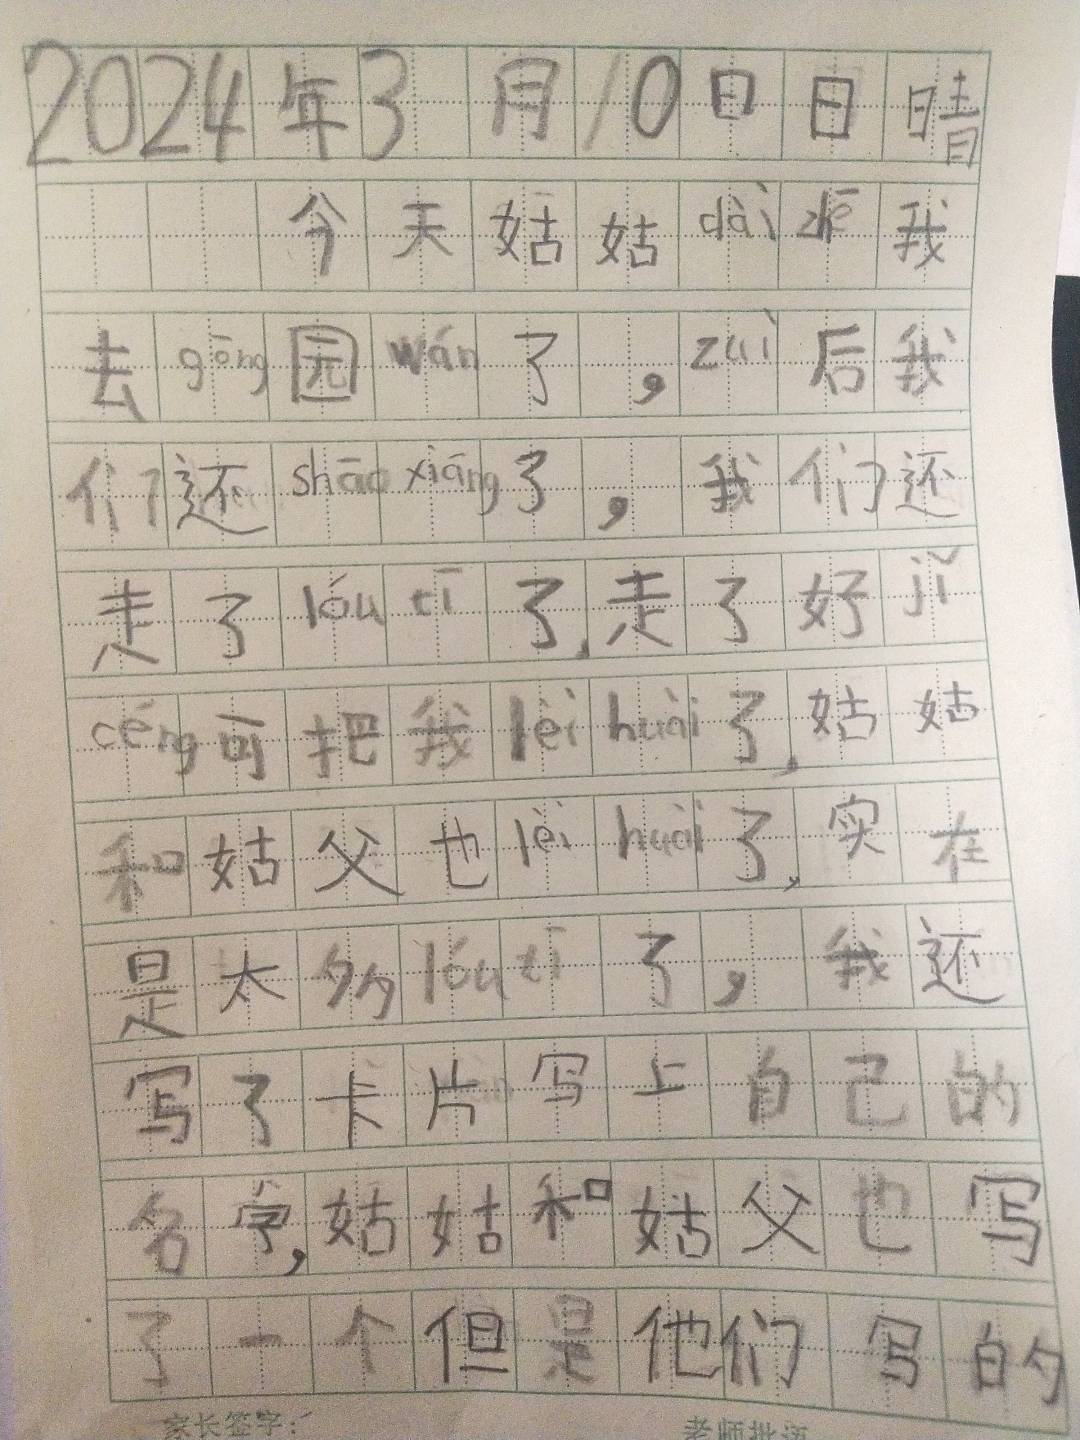 2024年3月10日日晴
今天姑姑dài zhē我
去gōng园wán了，zuì后我
们还shāo xiāng了，我们还
走了lóu tī了，走了好jǐ
céng可把我lèi huài了，姑姑
和姑父也lèi huài了，实在
是太多lóu tī了，我还
写了卡片写上自己的
名字，姑姑和姑父也写
了一个但是他们写的
家长签字：
老师批语